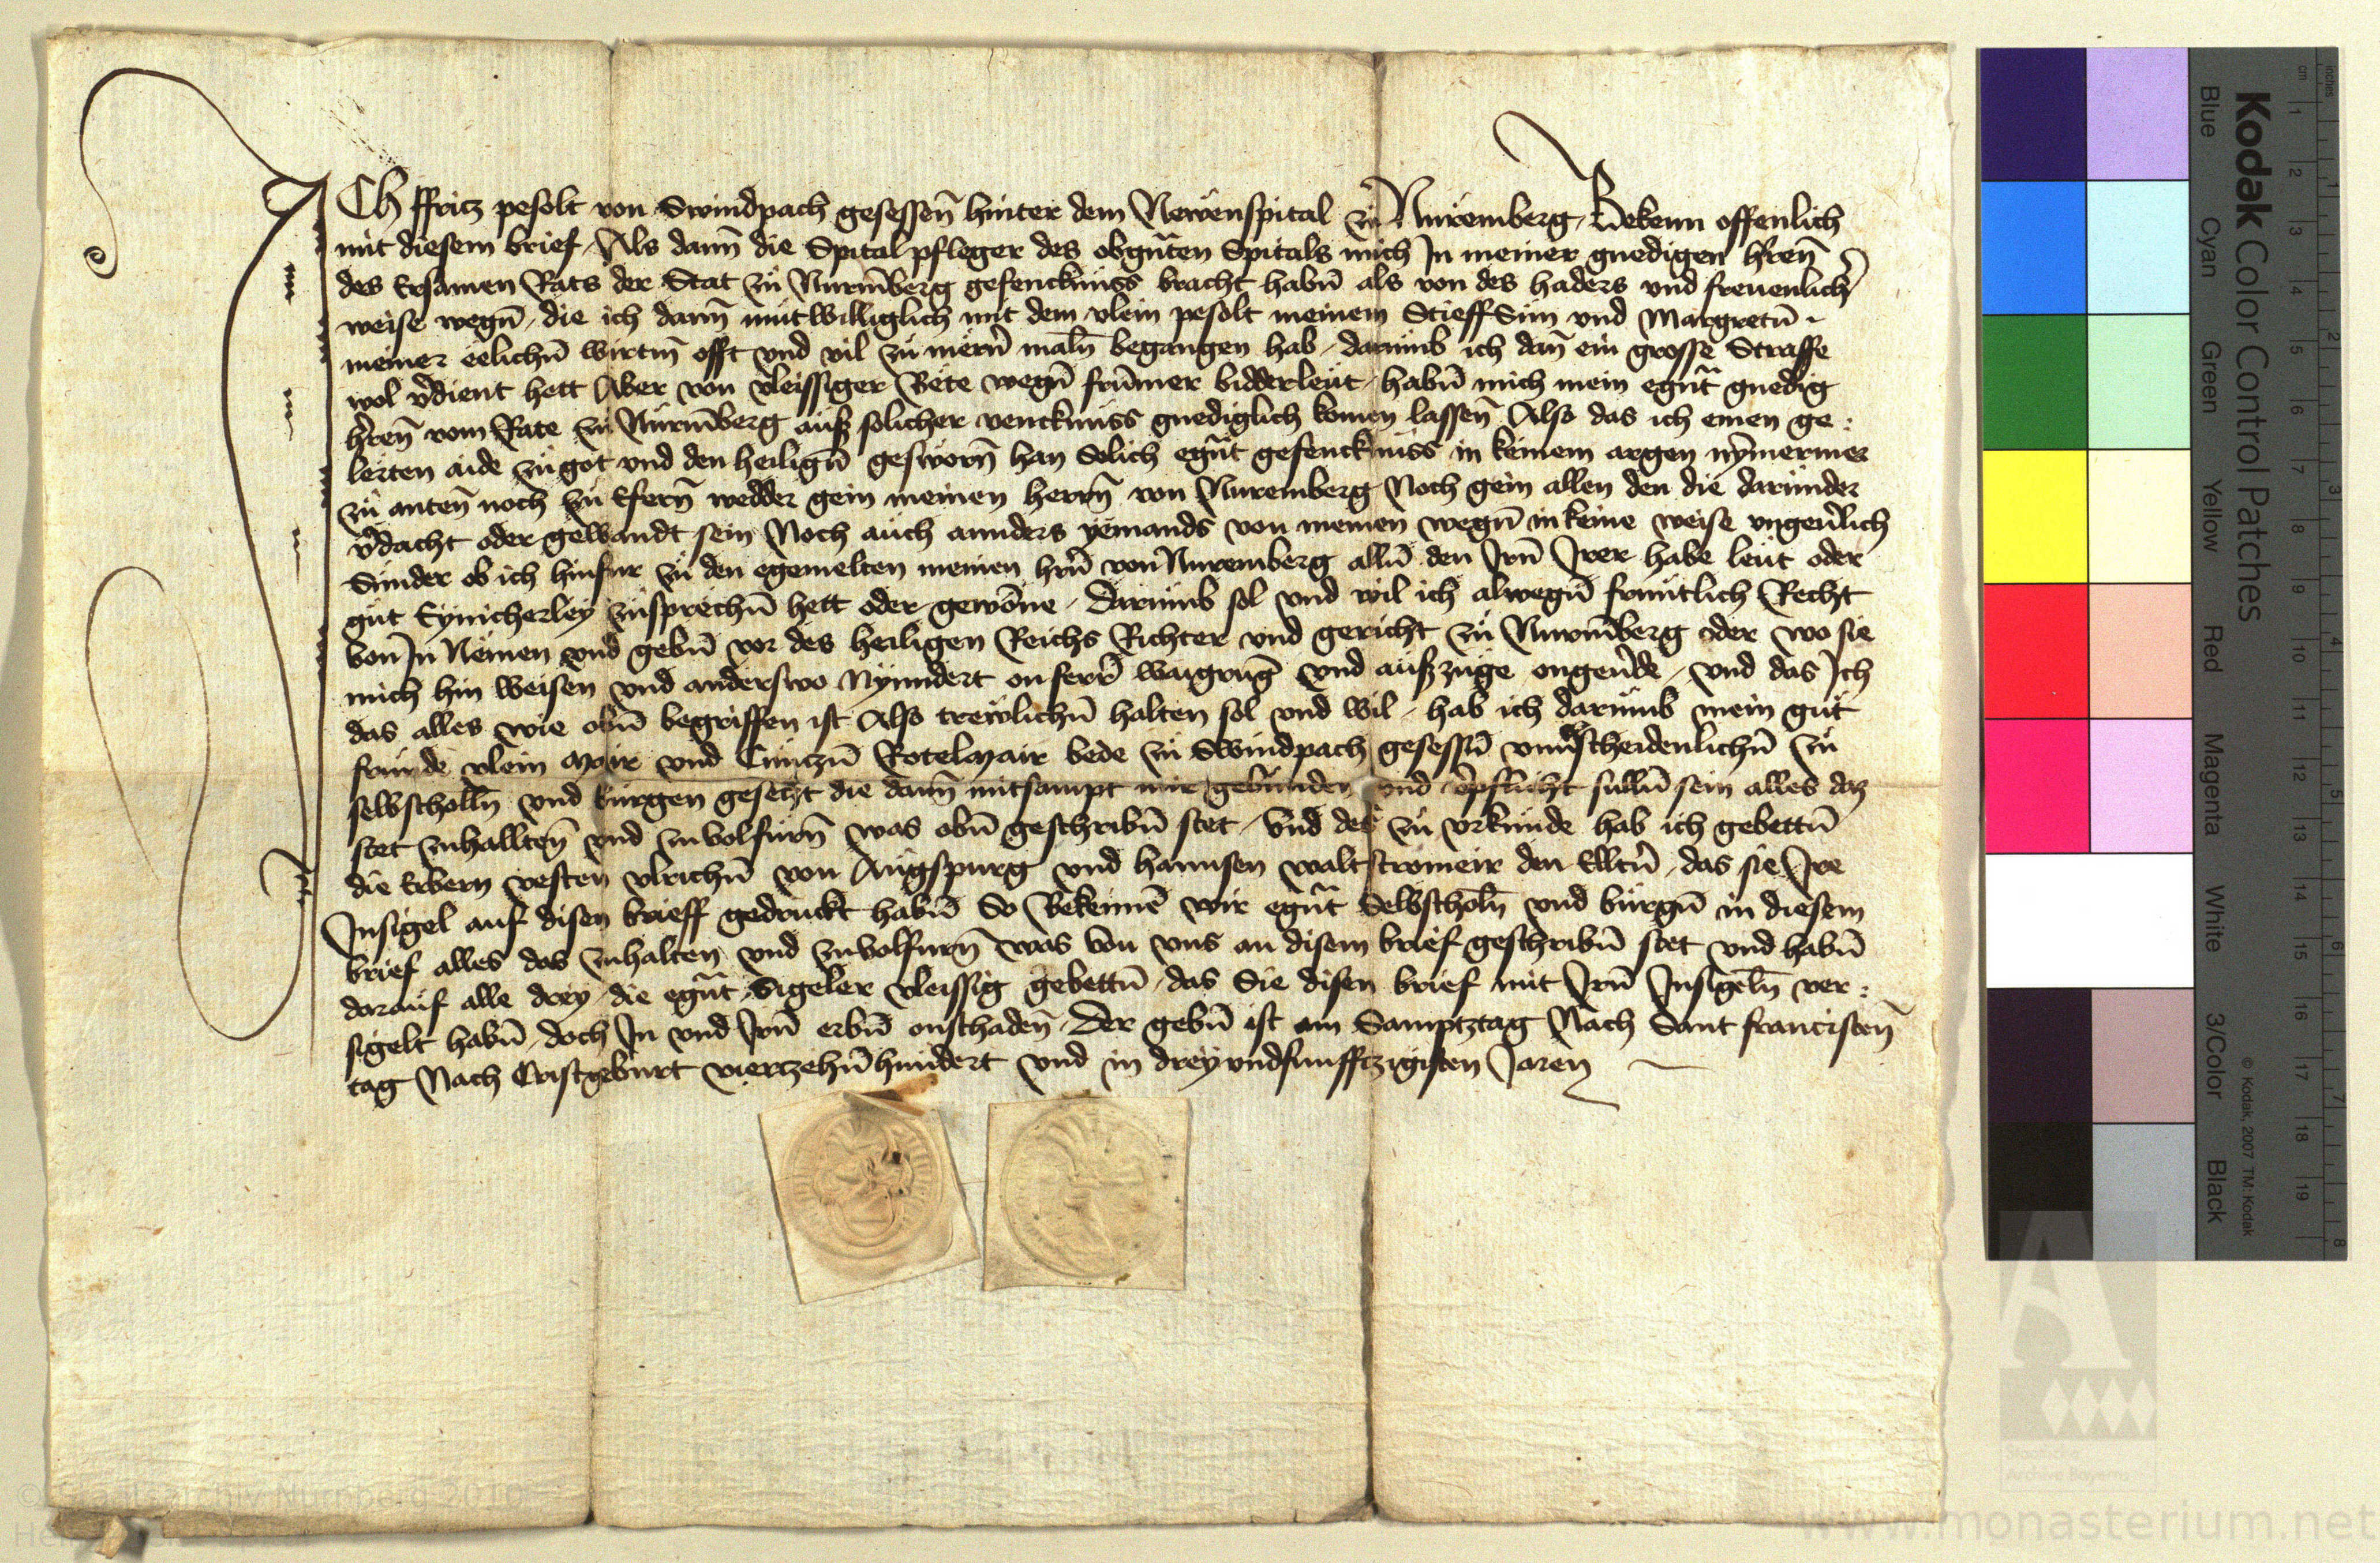 ICh ffritz pesolt von Swindpach gesessen̄ hinter dem Newenspital zu Nuremberg, Bekenn offenlich
mit diesem brief, Als dann̄ die Spitalpfleger des obgn̄ten Spitals mich In meiner gnedigen hr̄en̄
des Ersamen Rats der Stat zu Nurm̄berg gefencknuss bracht habn̄ als von des haders vnd freuenlich
weise wegn̄, die ich dann̄ mutwilliglich mit dem vlein pesolt meinem StieffSun vnd Margretn̄
meiner eelichn̄ wirtin̄ offt vnd vil zu mern̄ maln̄ begangen hab, darumb ich dan̄ ein grosse Straffe
wol v̄dient hett Aber von vleissiger Bete wegn̄ frum̄er bidderleut, habn̄ mich mein egn̄t gnedig
hr̄en̄ vom Rate zu Nurm̄berg auß solicher venckniss gnediglich komen lassen̄ Also das ich einen ge:
lerten aide zu got vnd den heilign̄ gesworn̄ han Solich egn̄t gefenckniss in keinem argen nym̄ermer
zu anten̄ noch zu Efern̄ wedder gein meinen herrn̄ von Nuremberg Noch gein allen den die darunder
v̄dacht oder gewandt sein Noch auch annders yemands von meinen wegn̄ in keine weise vngeu̇lich
Sunder ob ich hinfur zu den egemelten meinen hr̄n̄ von Nuremberg alln̄ den Irn̄ Irer habe leut oder
gut Eynicherley zusprechn̄ hett oder gewōne, Darumb sol vnd wil ich alwegn̄ fruntlich Recht
von In Nemen vnd gebn̄ vor des heiligen Reichs Richter vnd gericht zu Nurm̄berg oder wo sie
mich hin weisen vnd anderswo Nynndert on ferr̄ waigrūg vnd außzuge ongeu̇de, vnd das Ich
das alles wie obn̄ begriffen ist Also trewlichn̄ halten sol vnd wil, hab ich darumb mein gut
frunde vlein Mair vnd Cuntzn̄ Rotelmair bede zu Swindpach gesessn̄ vnuscheidenlichn̄ zu
selbscholln̄ vnd burgen gesetzt die dann̄ mitsampt mir gebunden vnd v̄pflicht sulln̄ sein alles daz
stet zuhallten̄ vnd zuvolfurn̄ was obn̄ geschribn̄ stet, Vnd des zu vrkunde hab ich gebettn̄
die Erbern vesten vlrichn̄ von Augspurg vnd hannsen waltstromeir den Elltn̄, das sie Ire
Insigel auf disen brieff gedruckt habn̄ So Bekennē wir egn̄t Selbscholn̄ vnd burgn̄ in diesem
brief alles das zuhalten vnd zuvolfurn̄ was von vns an disem brief geschribn̄ stet vnd habn̄
darauf alle drey, die egn̄t, Sigeler vleissig gebettn̄, das Sie disen brief mit Irn̄ Insigeln̄ ver:
sigelt habn̄, doch In vnd Irn̄ erbn̄ onschaden̄, Der gebn̄ ist am Samptztag Nach Sant francisten̄
tag Nach Cristgeburt vierzehn̄hundert vnd in dreyvndfunfftzigisten Jaren
Kodak Color Control Patches
Blue Cyan Green Yellow Red Magenta White 3/Color Black
© Kodak, 2007 TM: Kodak
cm 1 2 3 4 5 6 7 8 9 10 11 12 13 14 15 16 17 18 19
inches 1 2 3 4 5 6 7 8
Archive Bayerns
© Staatsarchiv Nürnberg 2010
www.monasterium.net